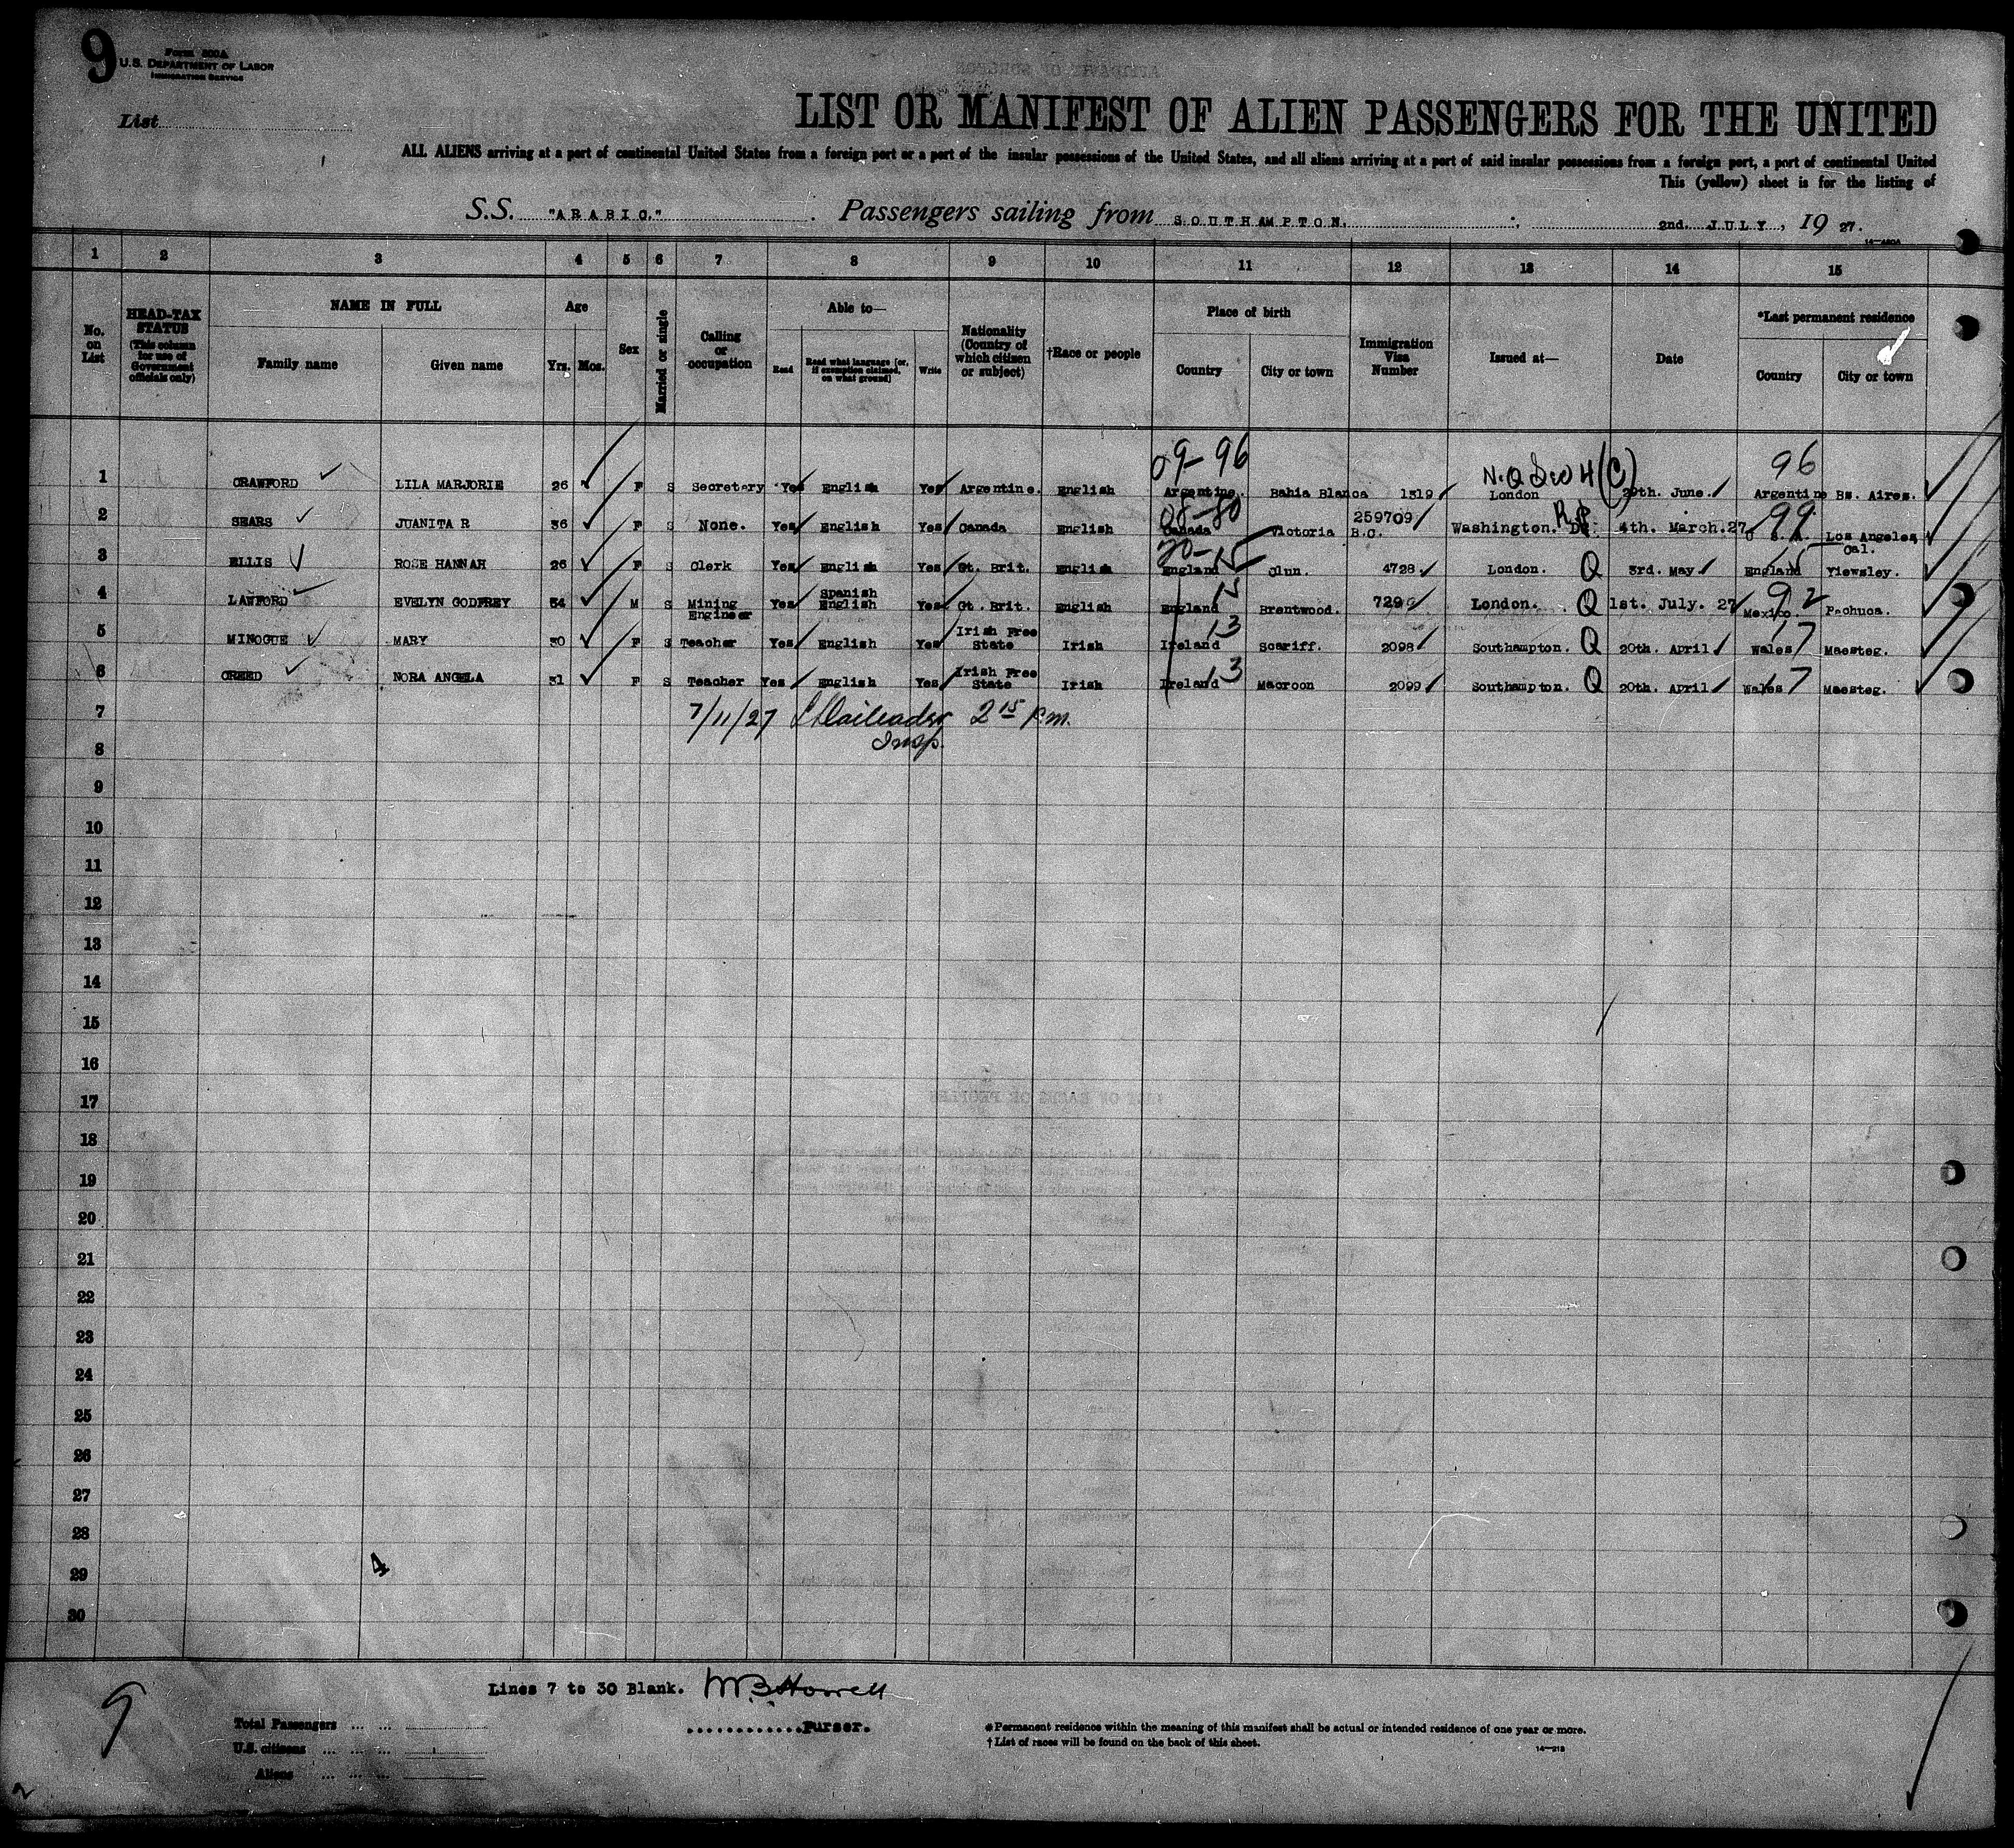 9
Form 500A
U.S. DEPARTMENT OF LABOR
IMMIGRATION SERVICE
List
LIST OR MANIFEST OF ALIEN PASSENGERS FOR THE UNITED
ALL ALIENS arriving at a port of continental United States from a foreign port or a port of the insular possessions of the United States, and all aliens arriving at a port of said insular possessions from a foreign port, a port of continental United
This (yellow) sheet is for the listing of
S.S. "ARABIC." Passengers sailing from SOUTHAMPTON. 2nd. JULY, 19 27.
1 2 3 4 5 6 7 8 9 10 11 12 13 14 15
No. on List
HEAD-TAX STATUS (This column for use of Government officials only)
NAME IN FULL
Family name Given name
Age
Yrs. Mos.
Sex
Married or single
Calling or occupation
Able to—
Read Read what language [or, if exemption claimed, on what ground] Write
Nationality (Country of which citizen or subject)
†Race or people
Place of birth
Country City or town
Immigration Visa Number
Issued at—
Date
*Last permanent residence
Country City or town
09-96 N.Q Sec 4 (C) 96
1 CRAWFORD LILA MARJORIE 26 F S Secretary Yes English Yes Argentine. English Argentine. Bahia Blanca 1319 London 29th. June. Argentine Bs. Aires.
08-80 99
2 SEARS JUANITA R 36 F S None. Yes English Yes Canada English Canada Victoria B.C. 259709 Washington. DC R.P. 4th. March.27 U.S.A. Los Angeles Cal.
20-15 15
3 ELLIS ROSE HANNAH 26 F S Clerk Yes English Yes Gt. Brit. English England Clun. 4728 London. Q 3rd. May England Yiewsley.
15 92
4 LAWFORD EVELYN GODFREY 34 M S Mining Engineer Yes Spanish English Yes Gt. Brit. English England Brentwood. 729 London. Q 1st. July. 27 Mexico. Pachuca.
13 17
5 MINOGUE MARY 30 F S Teacher Yes English Yes Irish Free State Irish Ireland Scariff. 2098 Southampton. Q 20th. April Wales Maesteg.
13 17
6 CREED NORA ANGELA 31 F S Teacher Yes English Yes Irish Free State Irish Ireland Macroon 2099 Southampton. Q 20th. April Wales Maesteg.
7 7/11/27 2 15 P.m.
Insp.
8
9
10
11
12
13
14
15
16
17
18
19
20
21
22
23
24
25
26
27
28
29
30
4
Lines 7 to 30 Blank. W.B. Howell
Purser.
9
Total Passengers
U.S. citizens
Aliens
*Permanent residence within the meaning of this manifest shall be actual or intended residence of one year or more.
†List of races will be found on the back of this sheet.
14—218